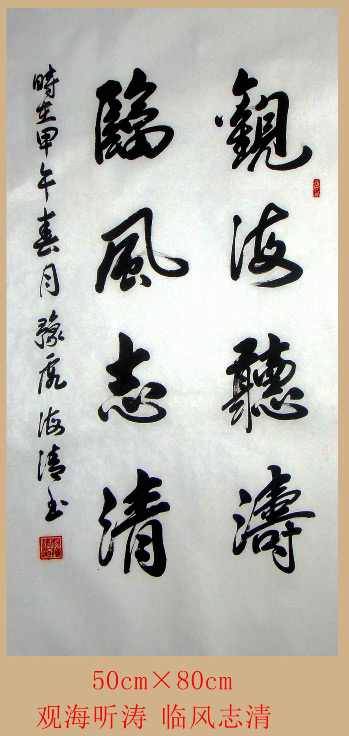 觀海聽濤
臨風志清
時在甲午春月豫鹿海清書
50cm×80cm
观海听涛 临风志清